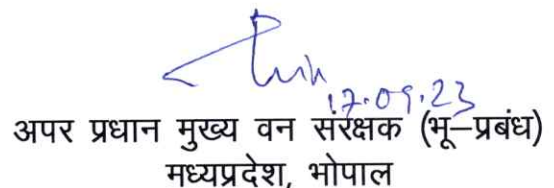 17.09.23
अपर प्रधान मुख्य वन संरक्षक (भू–प्रबंध)
मध्यप्रदेश, भोपाल